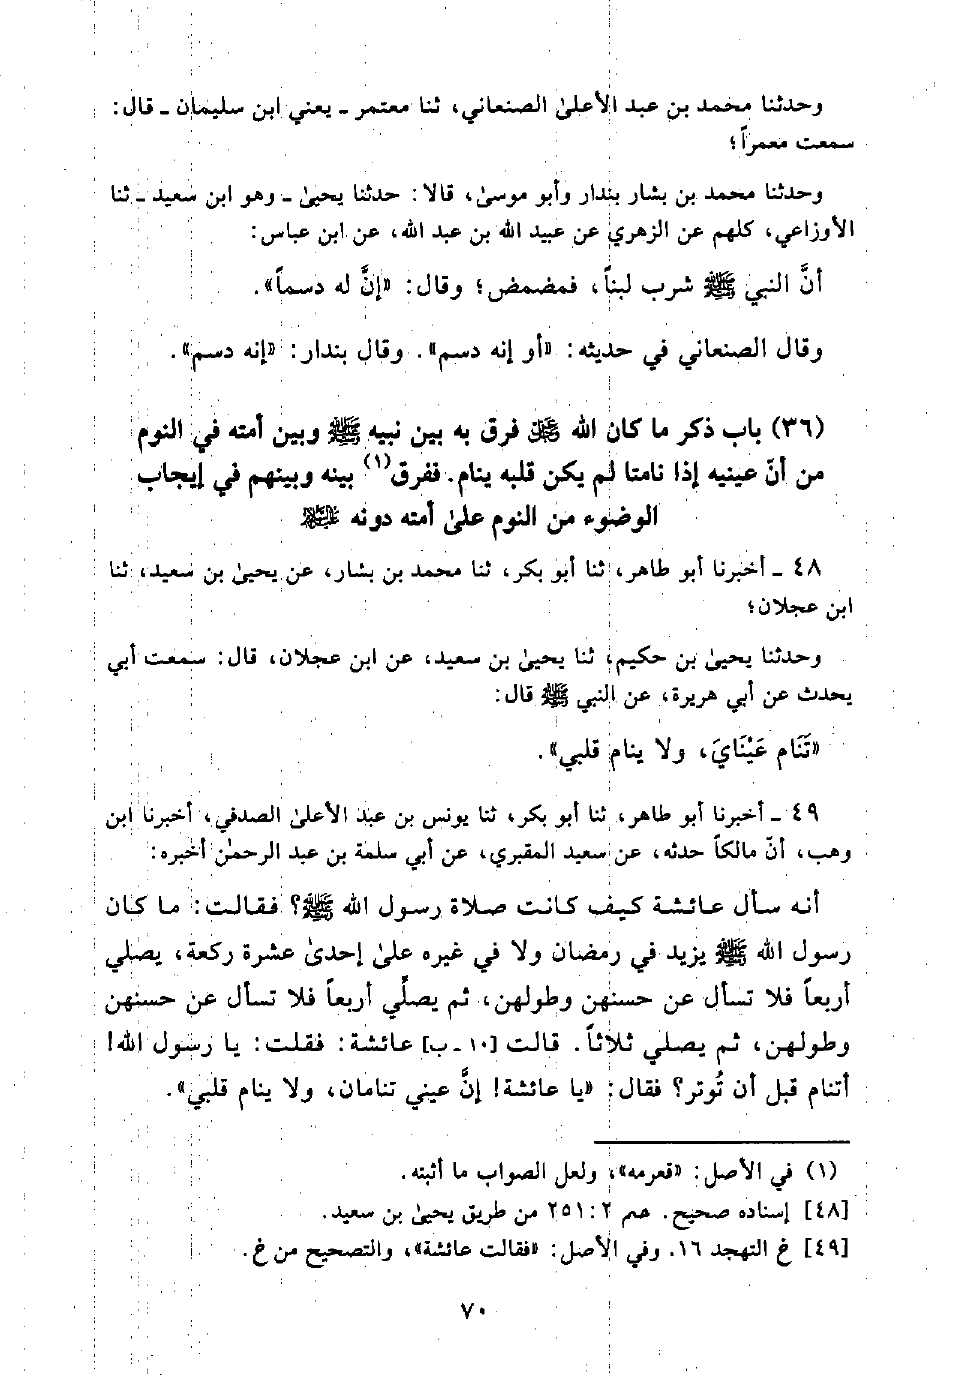 وحدثنا محمد بن عبد الأعلىٰ الصنعاني، ثنا معتمر ـ يعني ابن سليمان ـ قال:
سمعت معمراً؛
وحدثنا محمد بن بشار بندار وأبو موسىٰ، قالا: حدثنا يحيىٰ ـ وهو ابن سعيد ـ ثنا
الأوزاعي، كلهم عن الزهري عن عبيد الله بن عبد الله، عن ابن عباس:
أنَّ النبي ﷺ شرب لبناً، فمضمض؛ وقال: «إنَّ له دسماً».
وقال الصنعاني في حديثه: «أو إنه دسم». وقال بندار: «إنه دسم».
(٣٦) باب ذكر ما كان الله ﷿ فرق به بين نبيه ﷺ وبين أمته في النوم
من أنّ عينيه إذا نامتا لم يكن قلبه ينام. ففرق(١) بينه وبينهم في إيجاب
الوضوء من النوم علىٰ أمته دونه ﷺ
٤٨ ـ أخبرنا أبو طاهر، ثنا أبو بكر، ثنا محمد بن بشار، عن يحيىٰ بن سعيد، ثنا
ابن عجلان؛
وحدثنا يحيىٰ بن حكيم، ثنا يحيىٰ بن سعيد، عن ابن عجلان، قال: سمعت أبي
يحدث عن أبي هريرة، عن النبي ﷺ قال:
«تَنَام عَيْنَايَ، ولا ينام قلبي».
٤٩ ـ أخبرنا أبو طاهر، ثنا أبو بكر، ثنا يونس بن عبد الأعلىٰ الصدفي، أخبرنا ابن
وهب، أنّ مالكاً حدثه، عن سعيد المقبري، عن أبي سلمة بن عبد الرحمٰن أخبره:
أنه سأل عائشة كيف كانت صلاة رسول الله ﷺ؟ فقالت: ما كان
رسول الله ﷺ يزيد في رمضان ولا في غيره علىٰ إحدىٰ عشرة ركعة، يصلي
أربعاً فلا تسأل عن حسنهن وطولهن، ثم يصلِّي أربعاً فلا تسأل عن حسنهن
وطولهن، ثم يصلي ثلاثاً. قالت [١٠ ـ ب] عائشة: فقلت: يا رسول الله!
أتنام قبل أن تُوتر؟ فقال: «يا عائشة! إنَّ عيني تنامان، ولا ينام قلبي».
(١) في الأصل: «قعرمه»، ولعل الصواب ما أثبته.
[٤٨] إسناده صحيح. حم ٢: ٢٥١ من طريق يحيىٰ بن سعيد.
[٤٩] خ التهجد ١٦. وفي الأصل: «فقالت عائشة»، والتصحيح من خ.
٧٠